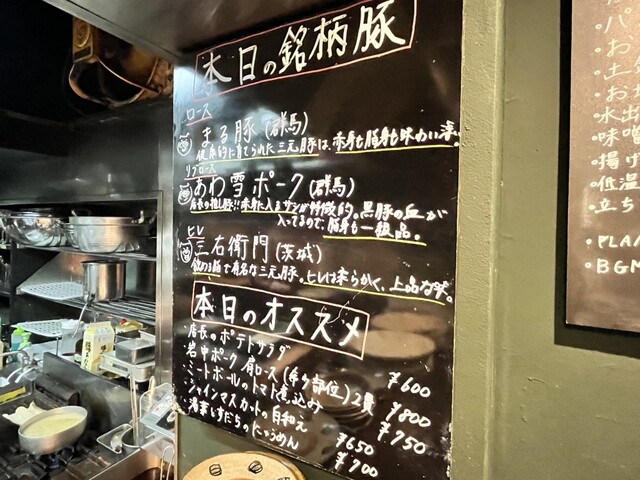 本日の銘柄豚
ロース
まる豚(群馬)
健康的に育てられた三元豚は、赤身も脂身も味わい深い。
リブロース
あわ雪ポーク(群馬)
店長の推し豚!!赤身に入るサシが特徴的。黒豚の血が
入ってるので、脂身も一級品。
ヒレ
三右衛門(茨城)
飲める脂で有名な三元豚。ヒレは柔らかく、上品な味。
本日のオススメ
・店長のポテトサラダ ¥600
・岩中ポーク 肩ロース(希少部位)2貫 ¥800
・ミートボールのトマト煮込み ¥750
・シャインマスカットの白和え ¥650
・湯葉とすだちのにゅうめん ¥700
・パ
・お
・土
・お
・水出
・味噌
・揚げ
・低温
・立ち
・PLA
・BGM